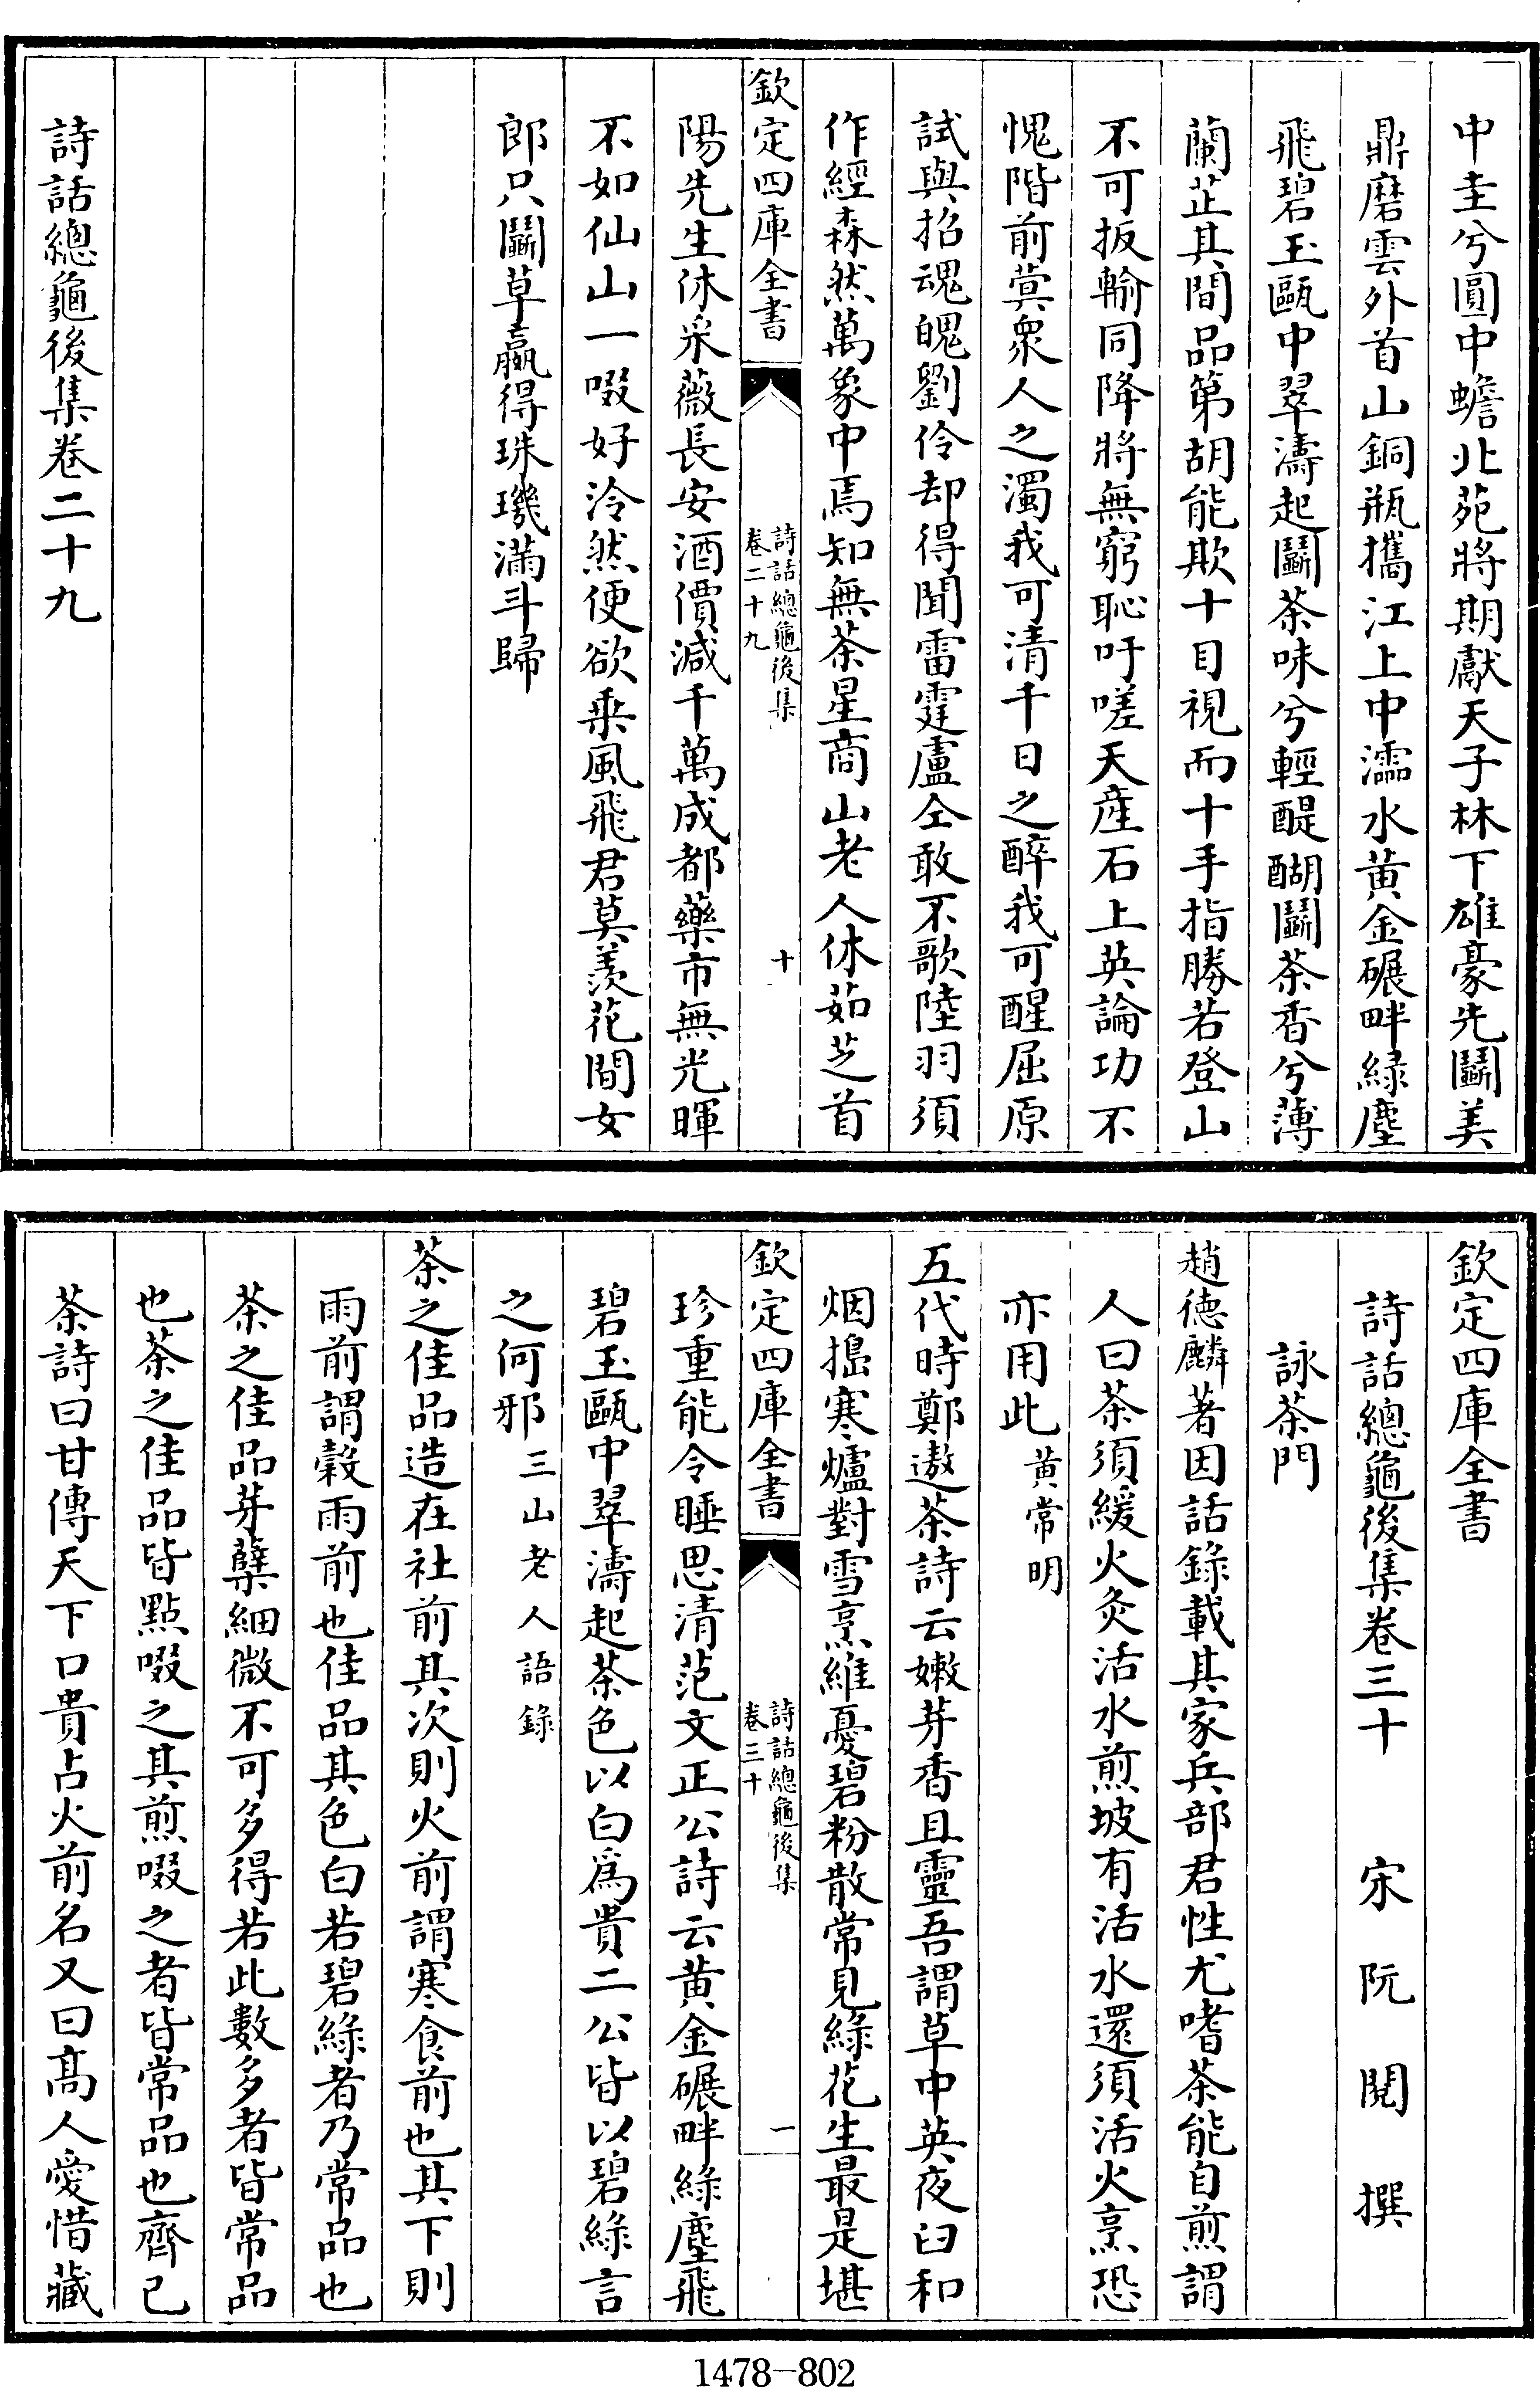 中圭兮圓中蟾北苑將期獻天子林下雄豪先鬬美
鼎磨雲外首山銅瓶攜江上中濡水黄金碾畔緑塵
飛碧玉甌中翠濤起鬬茶味兮輕醍醐鬬茶香兮薄
蘭芷其間品第胡能欺十目視而十手指勝若登山
不可扳輸同降將無窮恥吁嗟天産石上英論功不
愧階前蓂衆人之濁我可清千日之醉我可醒屈原
試與招魂魄劉伶却得聞雷霆盧仝敢不歌陸羽須
作經森然萬象中焉知無茶星商山老人休茹芝首
欽定四庫全書
詩話總龜後集
卷二十九
十
陽先生休采薇長安酒價減千萬成都藥市無光暉
不如仙山一啜好泠然便欲乗風飛君莫羨花間女
郎只鬬草贏得珠璣滿斗歸
詩話總龜後集卷二十九
欽定四庫全書
詩話總龜後集卷三十 宋 阮閱 撰
詠茶門
趙德麟著因話錄載其家兵部君性尤嗜茶能自煎謂
人曰茶須緩火灸活水煎坡有活水還須活火烹恐
亦用此黄常明
五代時鄭遨茶詩云嫩芽香且靈吾謂草中英夜臼和
烟搗寒爐對雪烹維憂碧粉散常見綠花生最是堪
欽定四庫全書
詩話總龜後集
卷三十
一
珍重能令睡思清范文正公詩云黄金碾畔綠塵飛
碧玉甌中翠濤起茶色以白爲貴二公皆以碧綠言
之何邪三山老人語錄
茶之佳品造在社前其次則火前謂寒食前也其下則
雨前謂穀雨前也佳品其色白若碧綠者乃常品也
茶之佳品芽蘖細微不可多得若此數多者皆常品
也茶之佳品皆點啜之其煎啜之者皆常品也齊己
茶詩曰甘傳天下口貴占火前名又曰髙人愛惜藏
1478—802